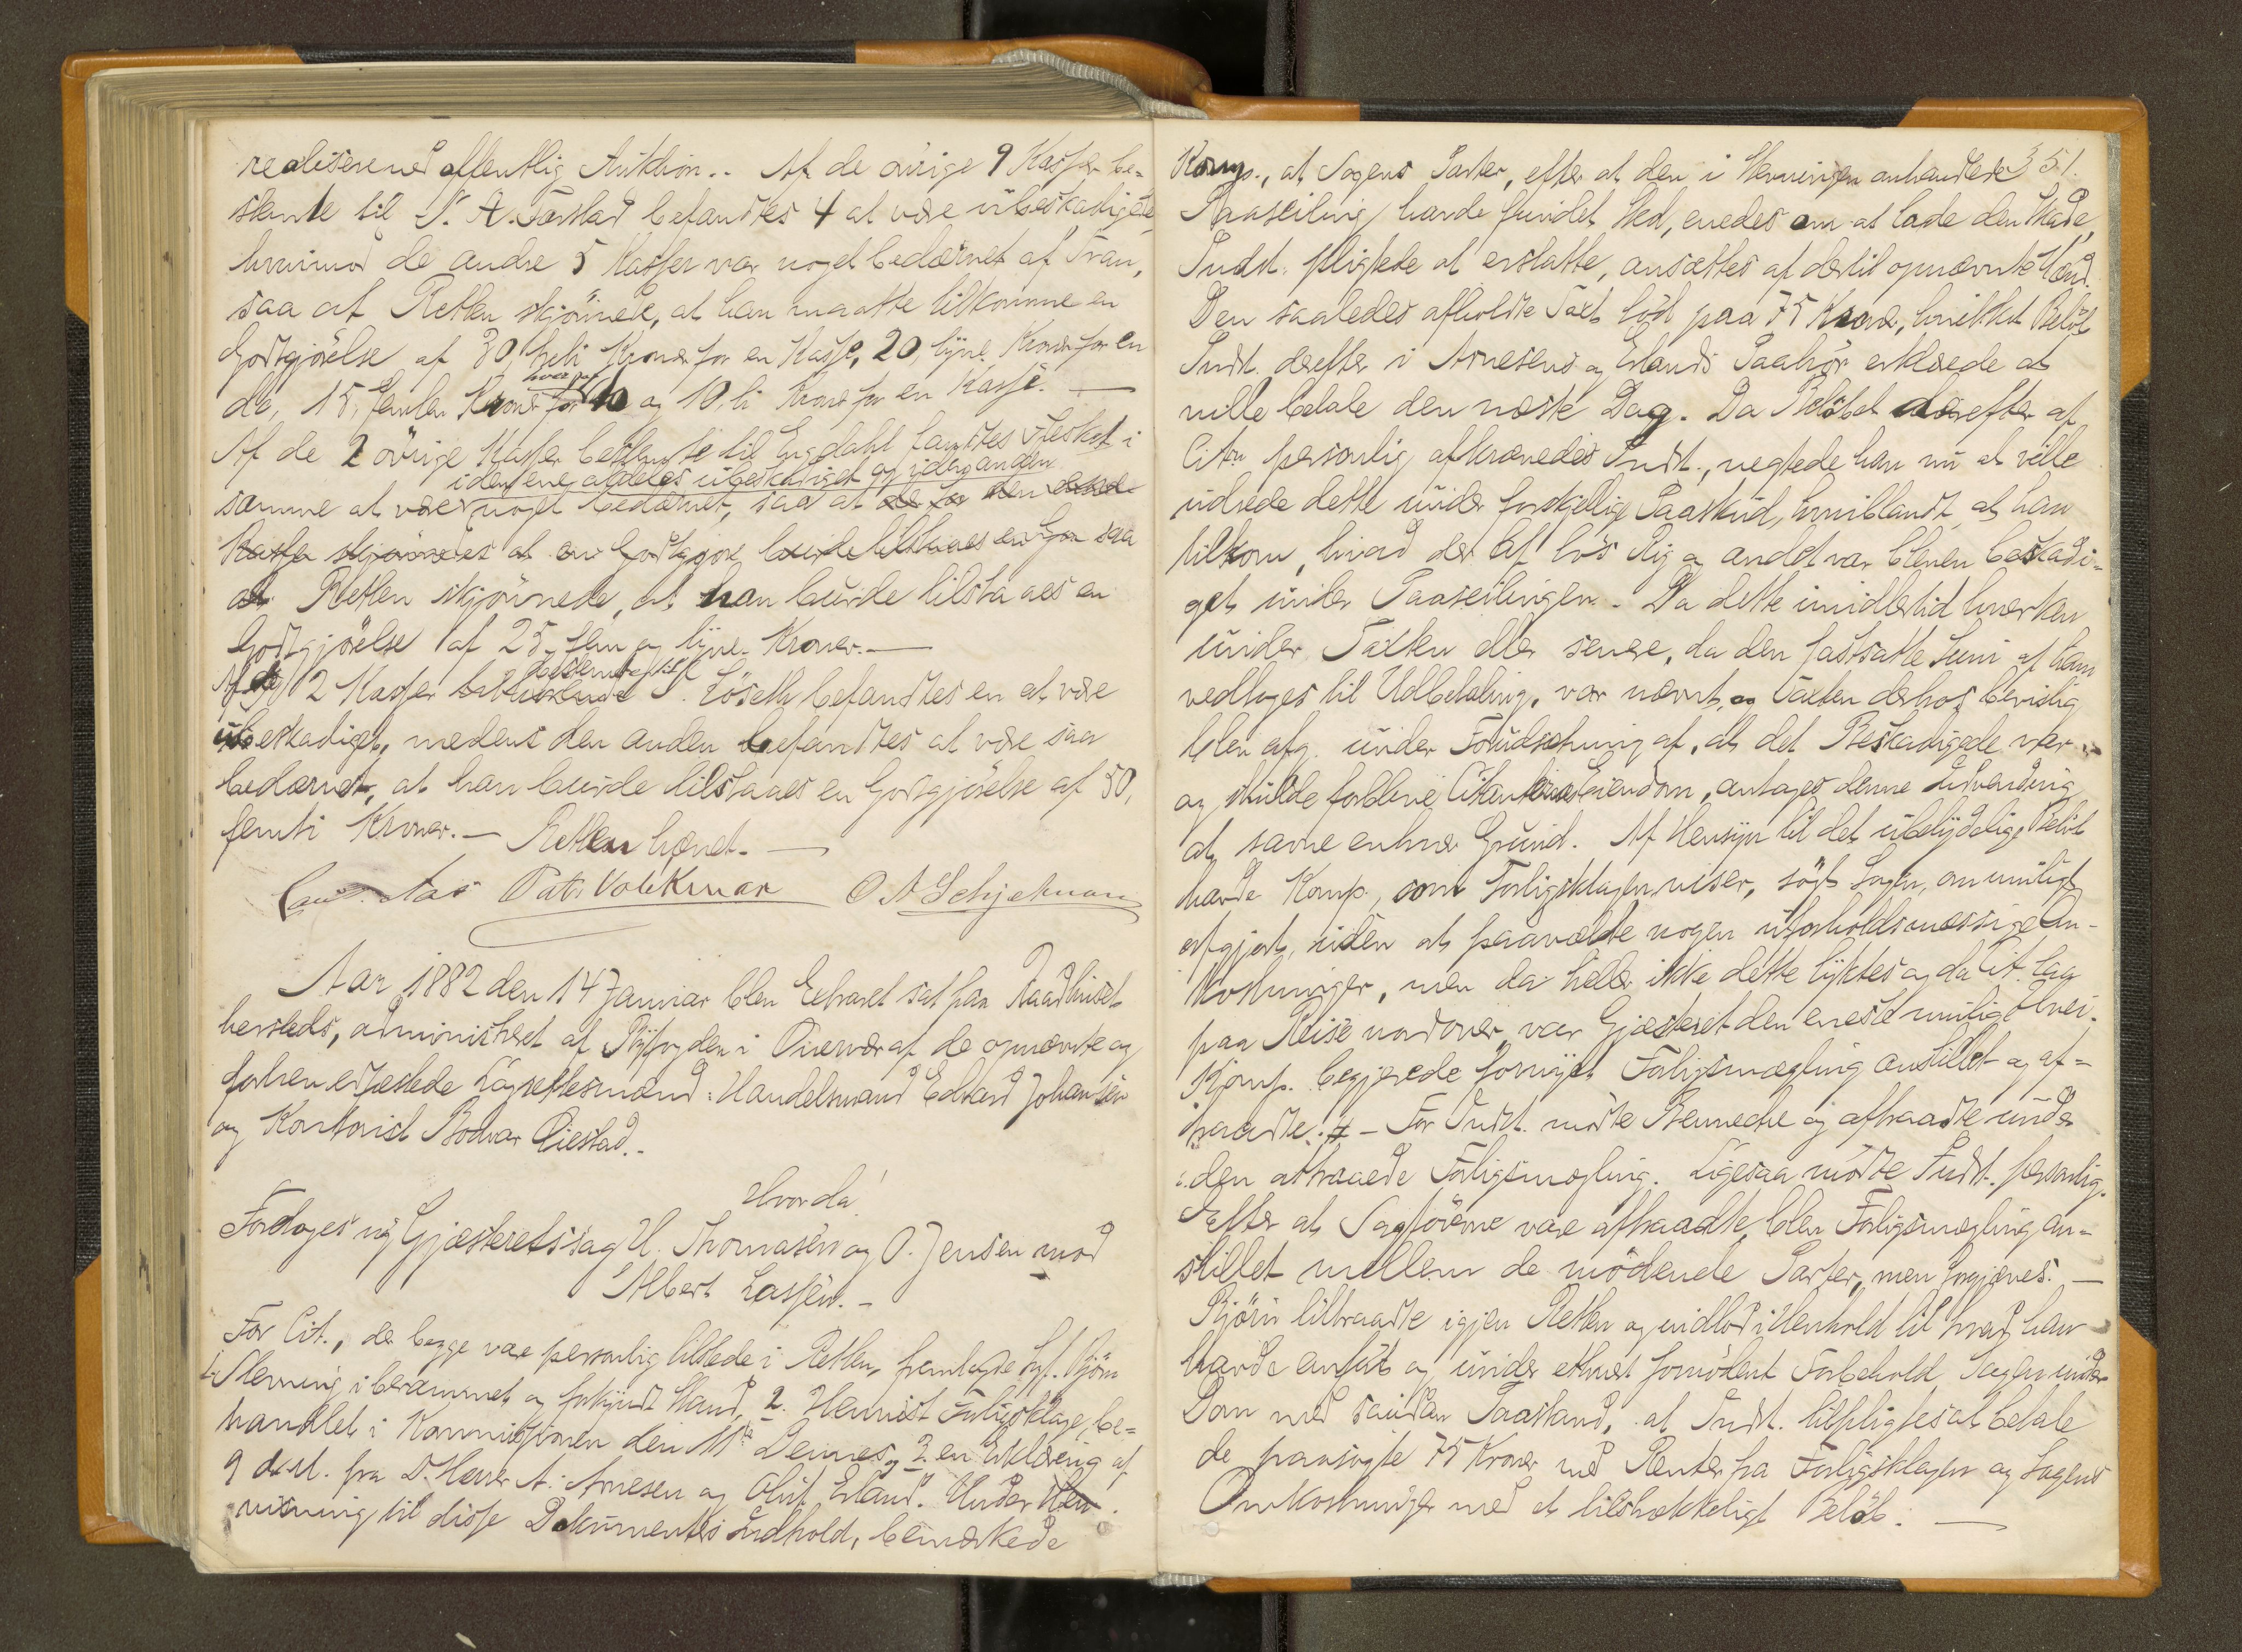 realiseres ved offentlig Auktion.. Af de övrige 9 Kasser be-
stemte til P. A. Torstad befandtes 4 at være ubeskadigede,
hvorimod de andre 5 Kasser var noget bedærvet af Tran,
saa at Retten skjönnede, at han maatte tilkomme en
Godtgjörelse af 30, treti Kroner for en Kasse, 20, tyve Kroner for en
do, 15, femten Kroner hver for for to og 10, ti Kroner for en Kasse. —
Af de 2 övrige Kasser bestemte til Engdahl fandtes Flesket i
iden ene aldeles ubeskadiget og i den anden
samme at være noget bedærvet, saa at de for den
Kasse skjönnedes at en Godtgjör burde tilstaaes en Gr saa
at Retten skjönnede, at han burde tilstaaes en
Godtgjörelse af 25, fem og tyve Kroner. —
bestemte til
Af de 2 Kasser Löseth befandtes en at være
ubeskadiget, medens den anden befandtes at være saa
bedærvet, at han burde tilstaaes en Godtgjörelse af 50,
femti Kroner. — Retten hævet. —
Aas Patr. Volckmar O. A. Schjelmann
Aar 1882 den 14 Januar blev Extraret sat paa Raadhuset
hersteds, administreret af Byfogden i Overvær af de opnævnte og
forhen edfæstede Lagrettesmænd: Handelsmand Edvard Johansen
og Kontorist Bodvar Qiestad. -
Hvorda!
Foretoges ny Gjæsteretssag H. Thomasen og O. Jensen mod
Albert Lassen. -
For Cit., der begge vare personlig tilstede i Retten, fremlagde Sagf. Björn
1. Stevning i berammet og forkyndt Stand, 2. Henvist Forligsklage, be-
handlet i Kommissionen den 11te Dennes og 3. en Erklæring af
9 ds. fra D'Herrer A. Arnesen og Oluf Erland. Under Hen-
visning til disse Dokumenters Indhold, bemærkede
351.
Komp., at Sagens Parter, efter at den i Stevningen omhandlede
Paaseiling havde fundet Sted, enedes om at lade den Skade,
Indst. pligtede at erstatte, ansættes af dertil opnævnte Mænd.
Den saaledes afholdte Taxt löd paa 75 Kroner, hvilket Belöb
Indst. derefter i Arnesens og Erlands Paahör erklærede at
ville betale den næste Dag. Da Belöbet derefter af
Citn personlig afkrævedes Indst., negtede han nu at ville
udrede dette under forskjellige Paaskud, hvoriblandt, at han
tilkom, hvad der af lös Rig og andet var bleven beskadi-
get under Paaseilingen. Da dette imidlertid hverken
under Taxten eller senere, da den fastsatte Sum af ham
vedtoges til Udbetaling, var nævnt, og Taxten derhos bevislig
blev afg. under Forudsætning af, at det Beskadigede var
og skulde forblive Citanternes Eiendom, antages denne Indvending
at savne enhver Grund. Af Hensyn til det ubetydelige Belöb
havde Komp, som Forligsklagen viser, sögt Sagen, om muligt
afgjort, uden at paavælte nogen uforholdsmæssige Om-
kostninger, men da heller ikke dette lykkes og da Cit. laa
paa Reise nordover, var Gjæsteret den eneste mulige Udvei.
Komp. begjærede fornyet Forligsmægling anstillet og af-
traadte. — For Indst. mödte Bennecke og aftraadte under
den attraaede Forligsmægling. Ligesaa mödte Indst. personlig.
Efter at Sagförerne vare aftraadte, blev Forligsmægling an-
stillet mellem de mödende Parter, men forgjæves. —
Björn tiltraadte igjen Retten og indlod i Henhold til hvad han
havde anfört og under ethvert fornödent Forbehold Sagen under
Dom med saadan Paastand, at Indst. tilpligtes at betale
de paasögte 75 Kroner med Renter fra Forligsklagen og Sagens
Omkostninger med et tilstrækkeligt Belöb. —